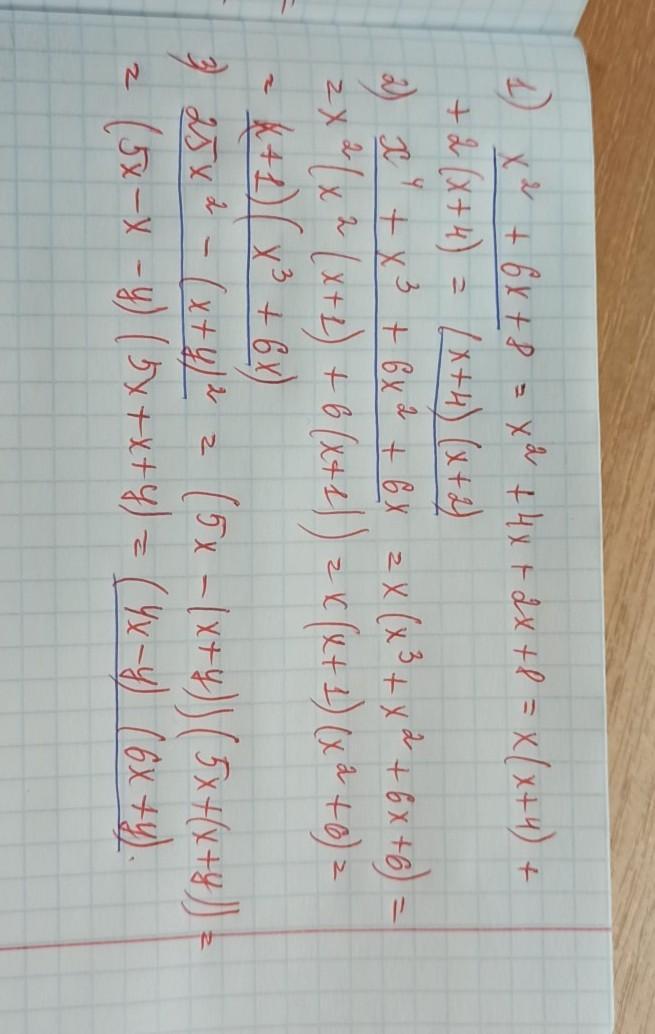 1) x² + 6x + 8 = x² + 4x + 2x + 8 = x(x+4) +
+ 2(x+4) = (x+4)(x+2)
2) x⁴ + x³ + 6x² + 6x = x(x³ + x² + 6x + 6) =
= x²(x²(x+1) + 6(x+1)) = x(x+1)(x² + 6) =
= (x+1)(x³ + 6x)
3) 25x² - (x+y)² = (5x - (x+y))(5x+(x+y)) =
= (5x - x - y)(5x + x + y) = (4x - y)(6x + y).